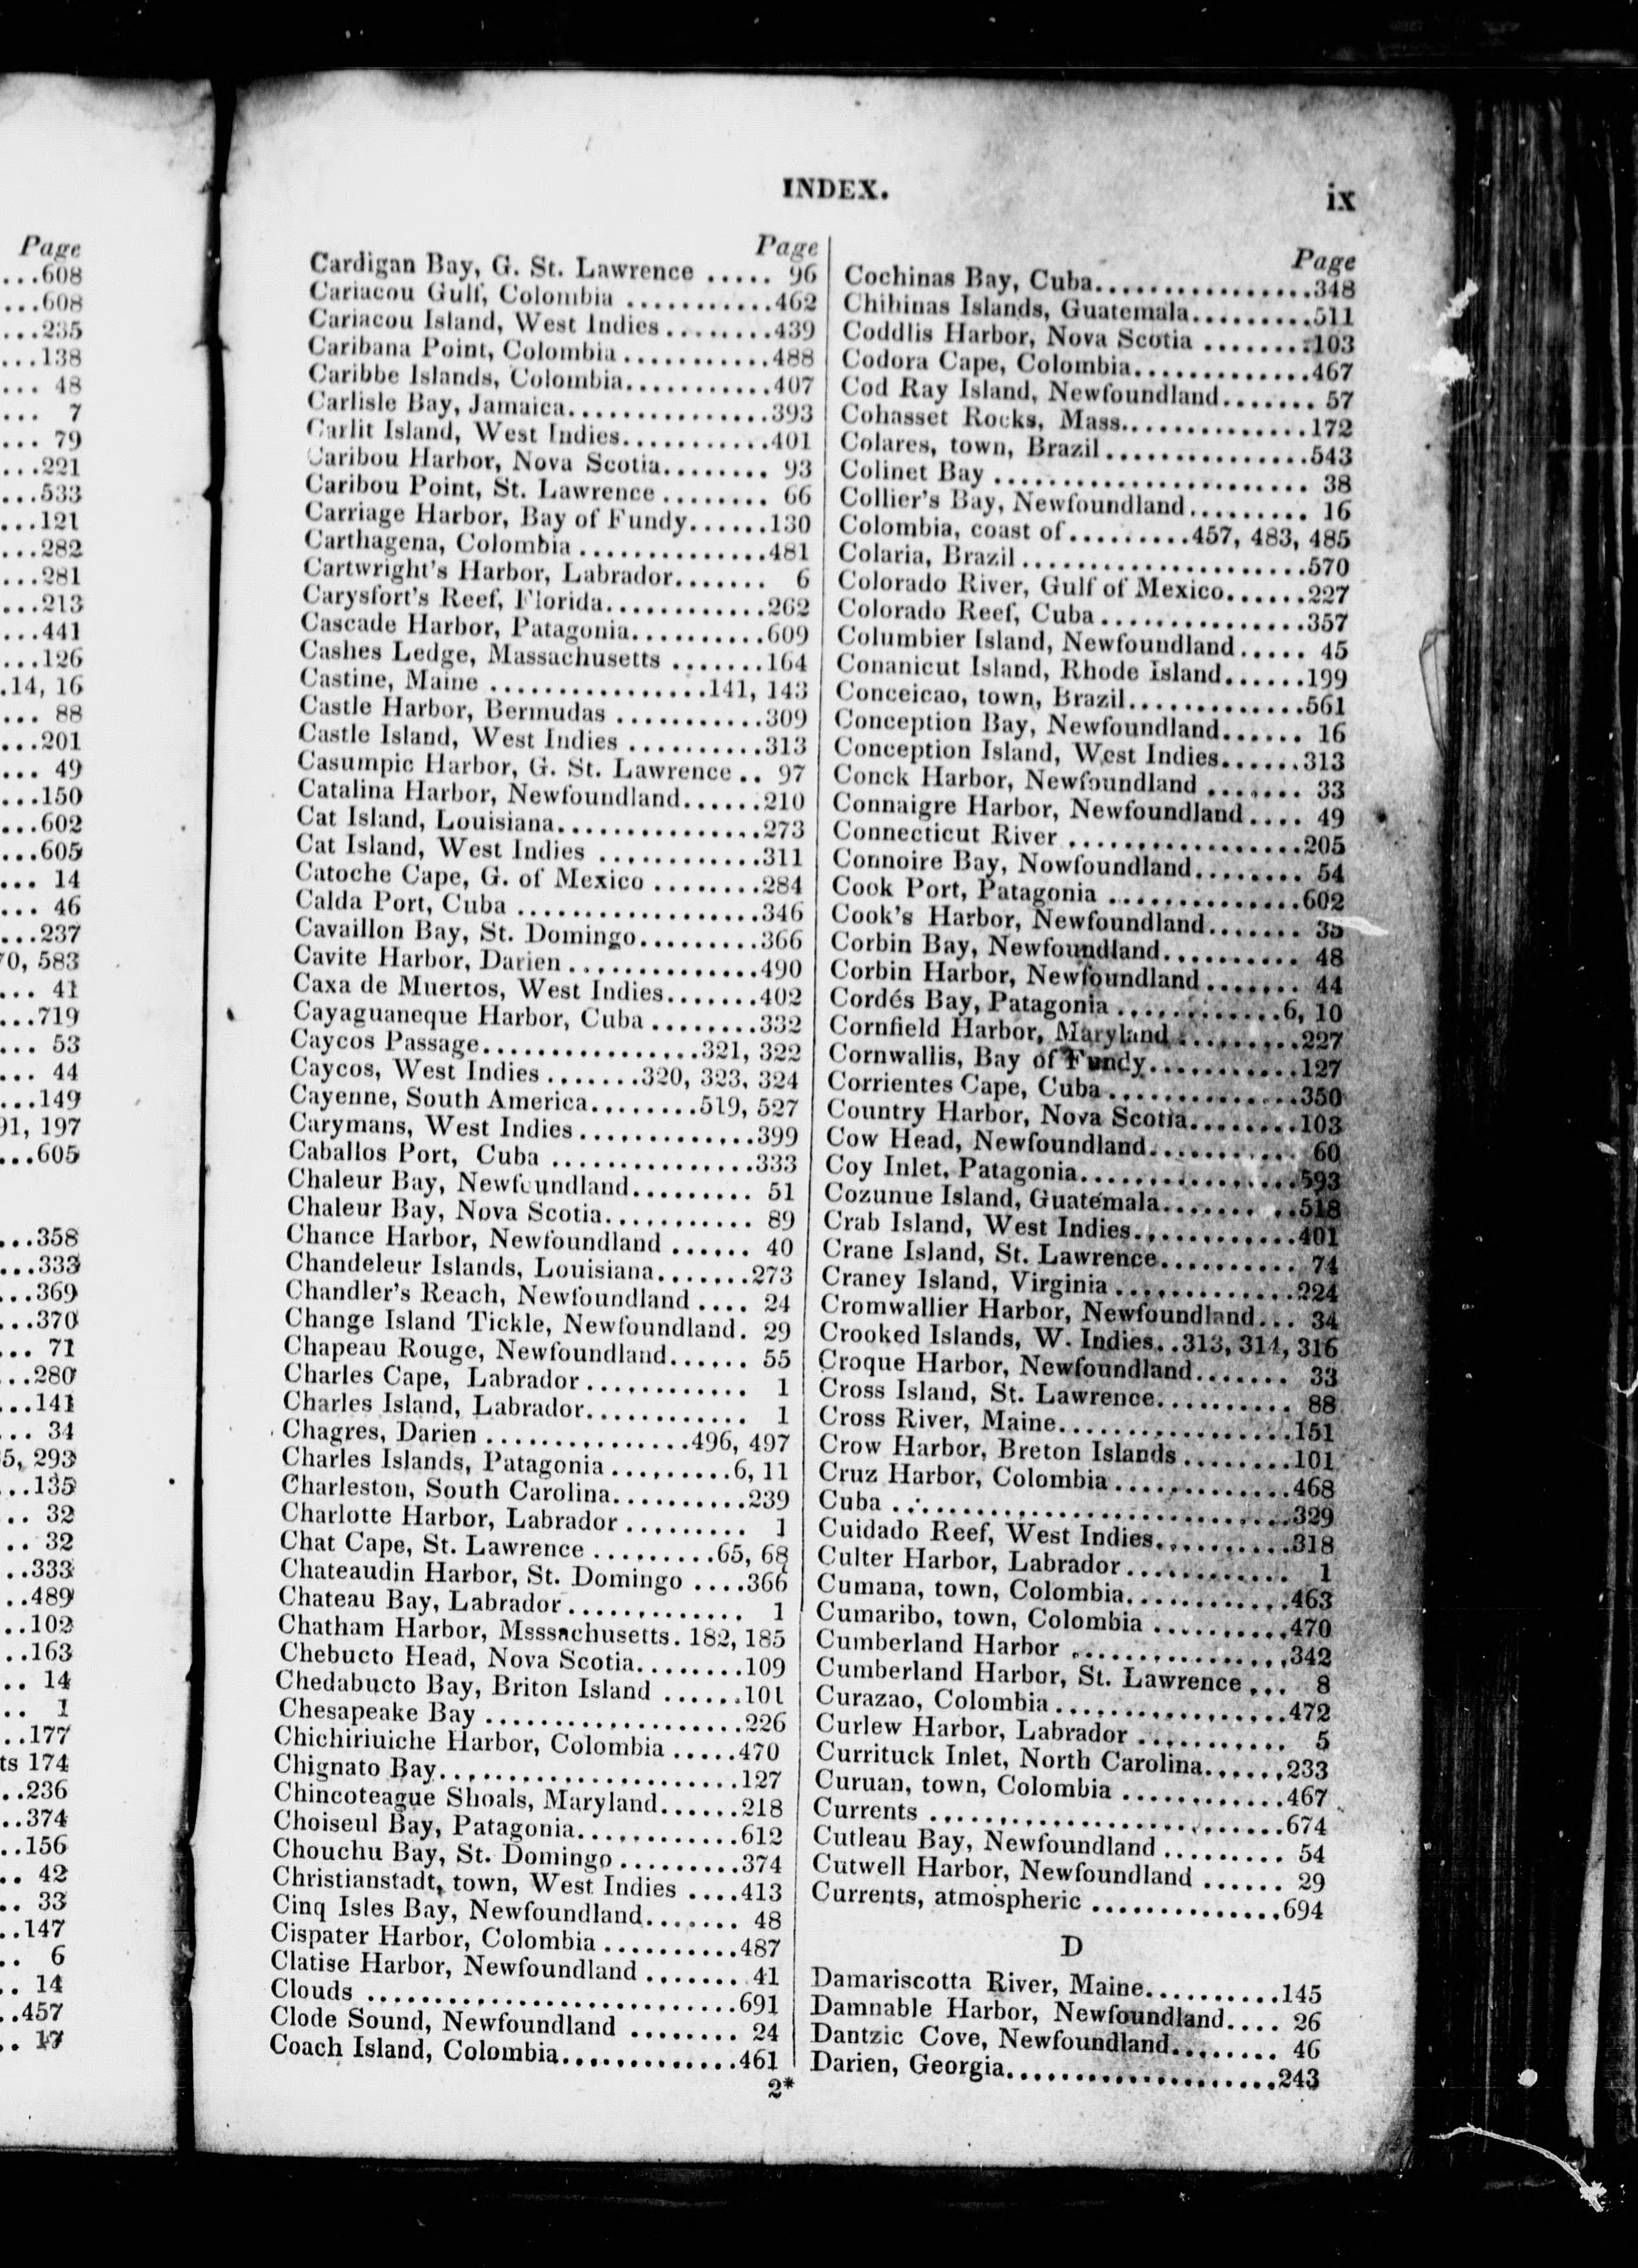 Page
...608
...608
...235
...138
... 48
... 7
... 79
...221
...533
...121
...282
...281
...213
...441
...126
.14, 16
... 88
...201
... 49
...150
...602
...605
... 14
... 46
...237
70, 583
... 41
...719
... 53
... 44
...149
91, 197
...605
...358
...333
...369
...370
... 71
...280
...141
... 34
5, 293
...135
.. 32
.. 32
..333
..489
..102
..163
.. 14
.. 1
..177
ts 174
..236
..374
..156
.. 42
.. 33
..147
.. 6
.. 14
..457
.. 17
INDEX.
ix
Page
Cardigan Bay, G. St. Lawrence ..... 96
Cariacou Gulf, Colombia ..........462
Cariacou Island, West Indies ........439
Caribana Point, Colombia ...........488
Caribbe Islands, Colombia...........407
Carlisle Bay, Jamaica...............393
Carlit Island, West Indies...........401
Caribou Harbor, Nova Scotia........ 93
Caribou Point, St. Lawrence ........ 66
Carriage Harbor, Bay of Fundy......130
Carthagena, Colombia ..............481
Cartwright's Harbor, Labrador....... 6
Carysfort's Reef, Florida............262
Cascade Harbor, Patagonia..........609
Cashes Ledge, Massachusetts .......164
Castine, Maine ................141, 143
Castle Harbor, Bermudas ...........309
Castle Island, West Indies ..........313
Casumpic Harbor, G. St. Lawrence .. 97
Catalina Harbor, Newfoundland......210
Cat Island, Louisiana...............273
Cat Island, West Indies ............311
Catoche Cape, G. of Mexico ........284
Calda Port, Cuba ..................346
Cavaillon Bay, St. Domingo.........366
Cavite Harbor, Darien ..............490
Caxa de Muertos, West Indies.......402
Cayaguaneque Harbor, Cuba ........332
Caycos Passage................321, 322
Caycos, West Indies .......320, 323, 324
Cayenne, South America........519, 527
Carymans, West Indies.............399
Caballos Port, Cuba ...............333
Chaleur Bay, Newfoundland......... 51
Chaleur Bay, Nova Scotia........... 89
Chance Harbor, Newfoundland ...... 40
Chandeleur Islands, Louisiana.......273
Chandler's Reach, Newfoundland .... 24
Change Island Tickle, Newfoundland. 29
Chapeau Rouge, Newfoundland...... 55
Charles Cape, Labrador ............ 1
Charles Island, Labrador............ 1
Chagres, Darien ...............496, 497
Charles Islands, Patagonia .........6, 11
Charleston, South Carolina..........239
Charlotte Harbor, Labrador ......... 1
Chat Cape, St. Lawrence .........65, 68
Chateaudin Harbor, St. Domingo ....366
Chateau Bay, Labrador ............. 1
Chatham Harbor, Msssachusetts. 182, 185
Chebucto Head, Nova Scotia........109
Chedabucto Bay, Briton Island ......101
Chesapeake Bay ...................226
Chichiriuiche Harbor, Colombia .....470
Chignato Bay......................127
Chincoteague Shoals, Maryland......218
Choiseul Bay, Patagonia............612
Chouchu Bay, St. Domingo .........374
Christianstadt, town, West Indies ....413
Cinq Isles Bay, Newfoundland....... 48
Cispater Harbor, Colombia ..........487
Clatise Harbor, Newfoundland ....... 41
Clouds ...........................691
Clode Sound, Newfoundland ........ 24
Coach Island, Colombia.............461
2*
Page
Cochinas Bay, Cuba................348
Chihinas Islands, Guatemala.........511
Coddlis Harbor, Nova Scotia ........103
Codora Cape, Colombia.............467
Cod Ray Island, Newfoundland....... 57
Cohasset Rocks, Mass..............172
Colares, town, Brazil...............543
Colinet Bay ....................... 38
Collier's Bay, Newfoundland......... 16
Colombia, coast of .........457, 483, 485
Colaria, Brazil .....................570
Colorado River, Gulf of Mexico......227
Colorado Reef, Cuba ...............357
Columbier Island, Newfoundland..... 45
Conanicut Island, Rhode Island......199
Conceicao, town, Brazil.............561
Conception Bay, Newfoundland...... 16
Conception Island, West Indies......313
Conck Harbor, Newfoundland ....... 33
Connaigre Harbor, Newfoundland .... 49
Connecticut River .................205
Connoire Bay, Nowfoundland........ 54
Cook Port, Patagonia ..............602
Cook's Harbor, Newfoundland....... 35
Corbin Bay, Newfoundland.......... 48
Corbin Harbor, Newfoundland ....... 44
Cordés Bay, Patagonia ............6, 10
Cornfield Harbor, Maryland .........227
Cornwallis, Bay of Fundy...........127
Corrientes Cape, Cuba..............350
Country Harbor, Nova Scotia........103
Cow Head, Newfoundland........... 60
Coy Inlet, Patagonia................593
Cozunue Island, Guatemala.........518
Crab Island, West Indies............401
Crane Island, St. Lawrence.......... 74
Craney Island, Virginia .............224
Cromwallier Harbor, Newfoundland... 34
Crooked Islands, W. Indies. .313, 314, 316
Croque Harbor, Newfoundland....... 33
Cross Island, St. Lawrence.......... 88
Cross River, Maine.................151
Crow Harbor, Breton Islands ........101
Cruz Harbor, Colombia .............468
Cuba .............................329
Cuidado Reef, West Indies..........318
Culter Harbor, Labrador............ 1
Cumana, town, Colombia............463
Cumaribo, town, Colombia ..........470
Cumberland Harbor ................342
Cumberland Harbor, St. Lawrence ... 8
Curazao, Colombia .................472
Curlew Harbor, Labrador ........... 5
Currituck Inlet, North Carolina......233
Curuan, town, Colombia ............467
Currents ..........................674
Cutleau Bay, Newfoundland ......... 54
Cutwell Harbor, Newfoundland ...... 29
Currents, atmospheric ..............694
D
Damariscotta River, Maine..........145
Damnable Harbor, Newfoundland.... 26
Dantzic Cove, Newfoundland........ 46
Darien, Georgia....................243